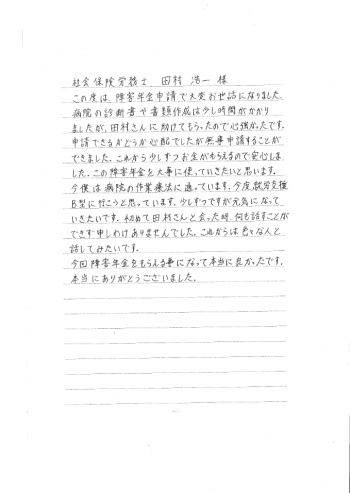 社会保険労務士 田村 浩一 様
この度は、障害年金申請で大変お世話になりました。
病院の診断書や書類作成は少し時間がかかり
ましたが、田村さんに助けてもらったので心強かったです。
申請できるかどうか心配でしたが無事申請することが
できました。これから少しずつお金がもらえるので安心しま
した。この障害年金を大事に使っていきたいと思います。
今後は病院の作業療法に通っています。今度就労支援
B型に行こうと思っています。少しずつですが元気になって
いきたいです。初めて田村さんと会った時、何も話すことが
できず申しわけありませんでした。これからは色々な人と
話してみたいです。
今回障害年金をもらえる事になって本当に良かったです。
本当にありがとうございました。